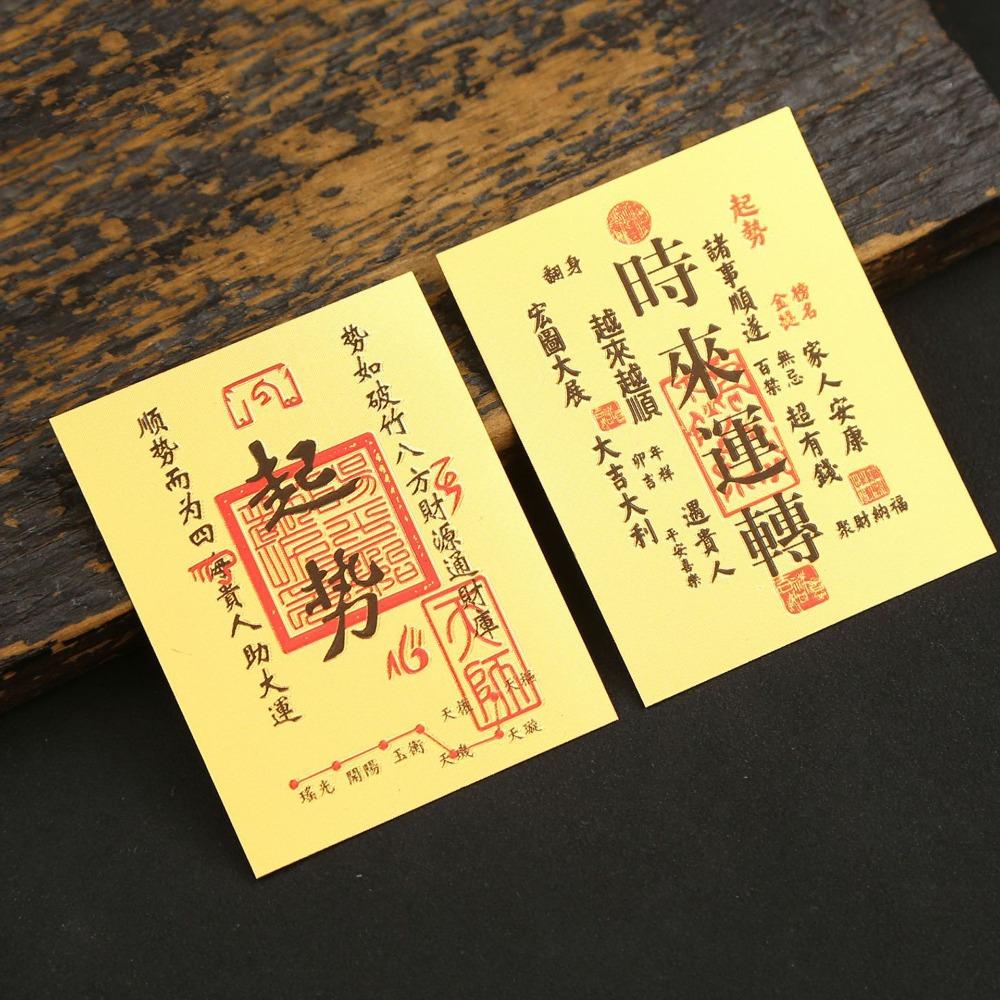 勢如破竹八方財源通財庫
起势
顺势而为四海貴人助大運
天師
天樞
天璇
天機
天權
玉衡
開陽
瑤光
起勢
榜名
金提
家人安康
無忌
百禁
超有錢
聚財納福
諸事順遂
時來運轉
遇貴人
平安喜樂
翻身
越來越順
年祥
卯吉
大吉大利
宏圖大展